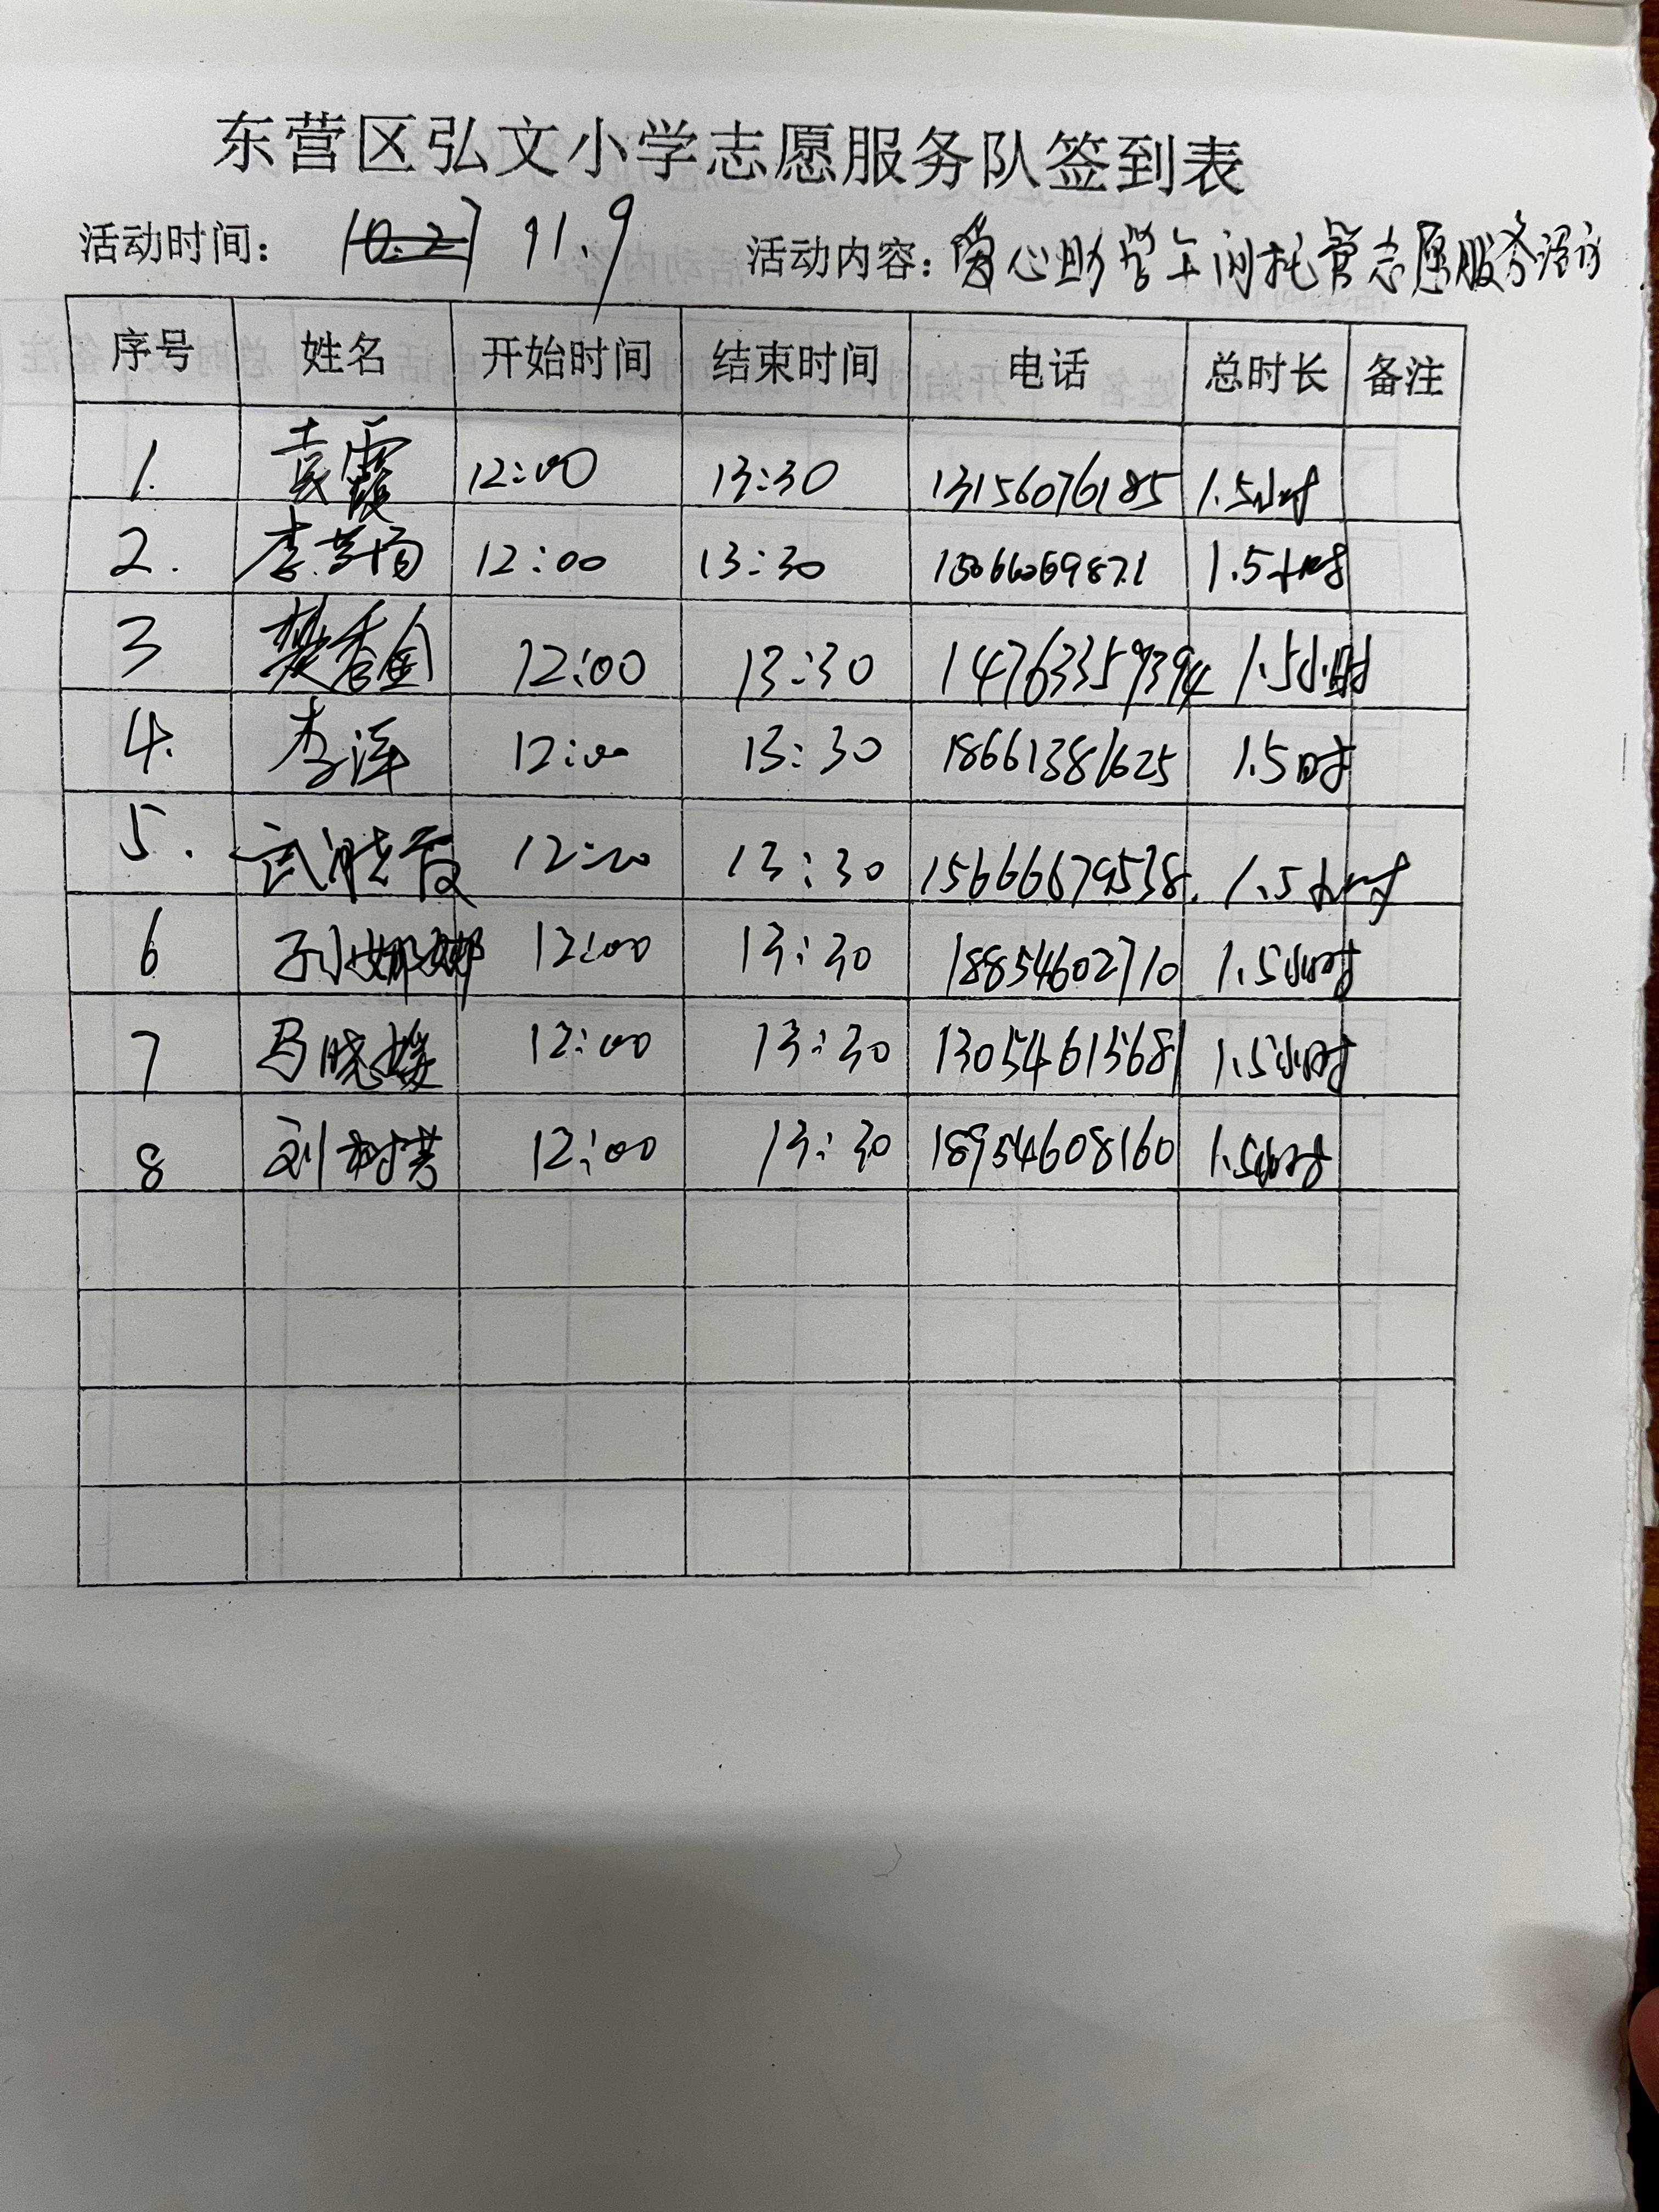 东营区弘文小学志愿服务队签到表
活动时间： 11.9 活动内容：爱心助学午间托管志愿服务活动
序号 姓名 开始时间 结束时间 电话 总时长 备注
1. 袁霞 12:00 13:30 13156076185 1.5小时
2. 12:00 13:30 15066069871 1.5小时
3 樊香金 12:00 13:30 14763359394 1.5小时
4. 李萍 12:00 13:30 18661381625 1.5时
5. 武晓霞 12:00 13:30 15666679538. 1.5小时
6 孙娜娜 12:00 13:30 18854602710 1.5小时
7 马晓媛 12:00 13:30 13054613681 1.5小时
8 刘树芳 12:00 13:30 18954608160 1.5小时